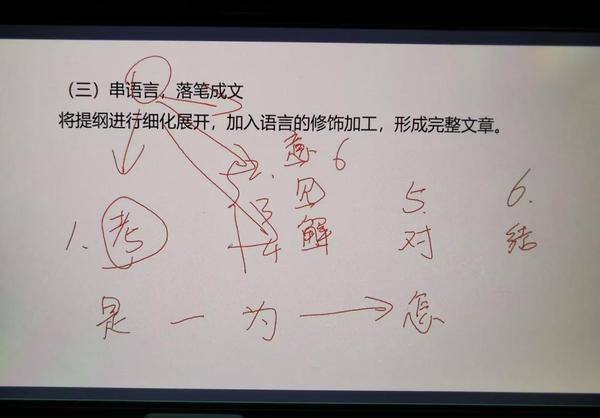 （三）串语言，落笔成文
将提纲进行细化展开，加入语言的修饰加工，形成完整文章。
2. 意 6
3 见 5. 6.
1. 考 4 解 对 结
是 一 为 → 怎